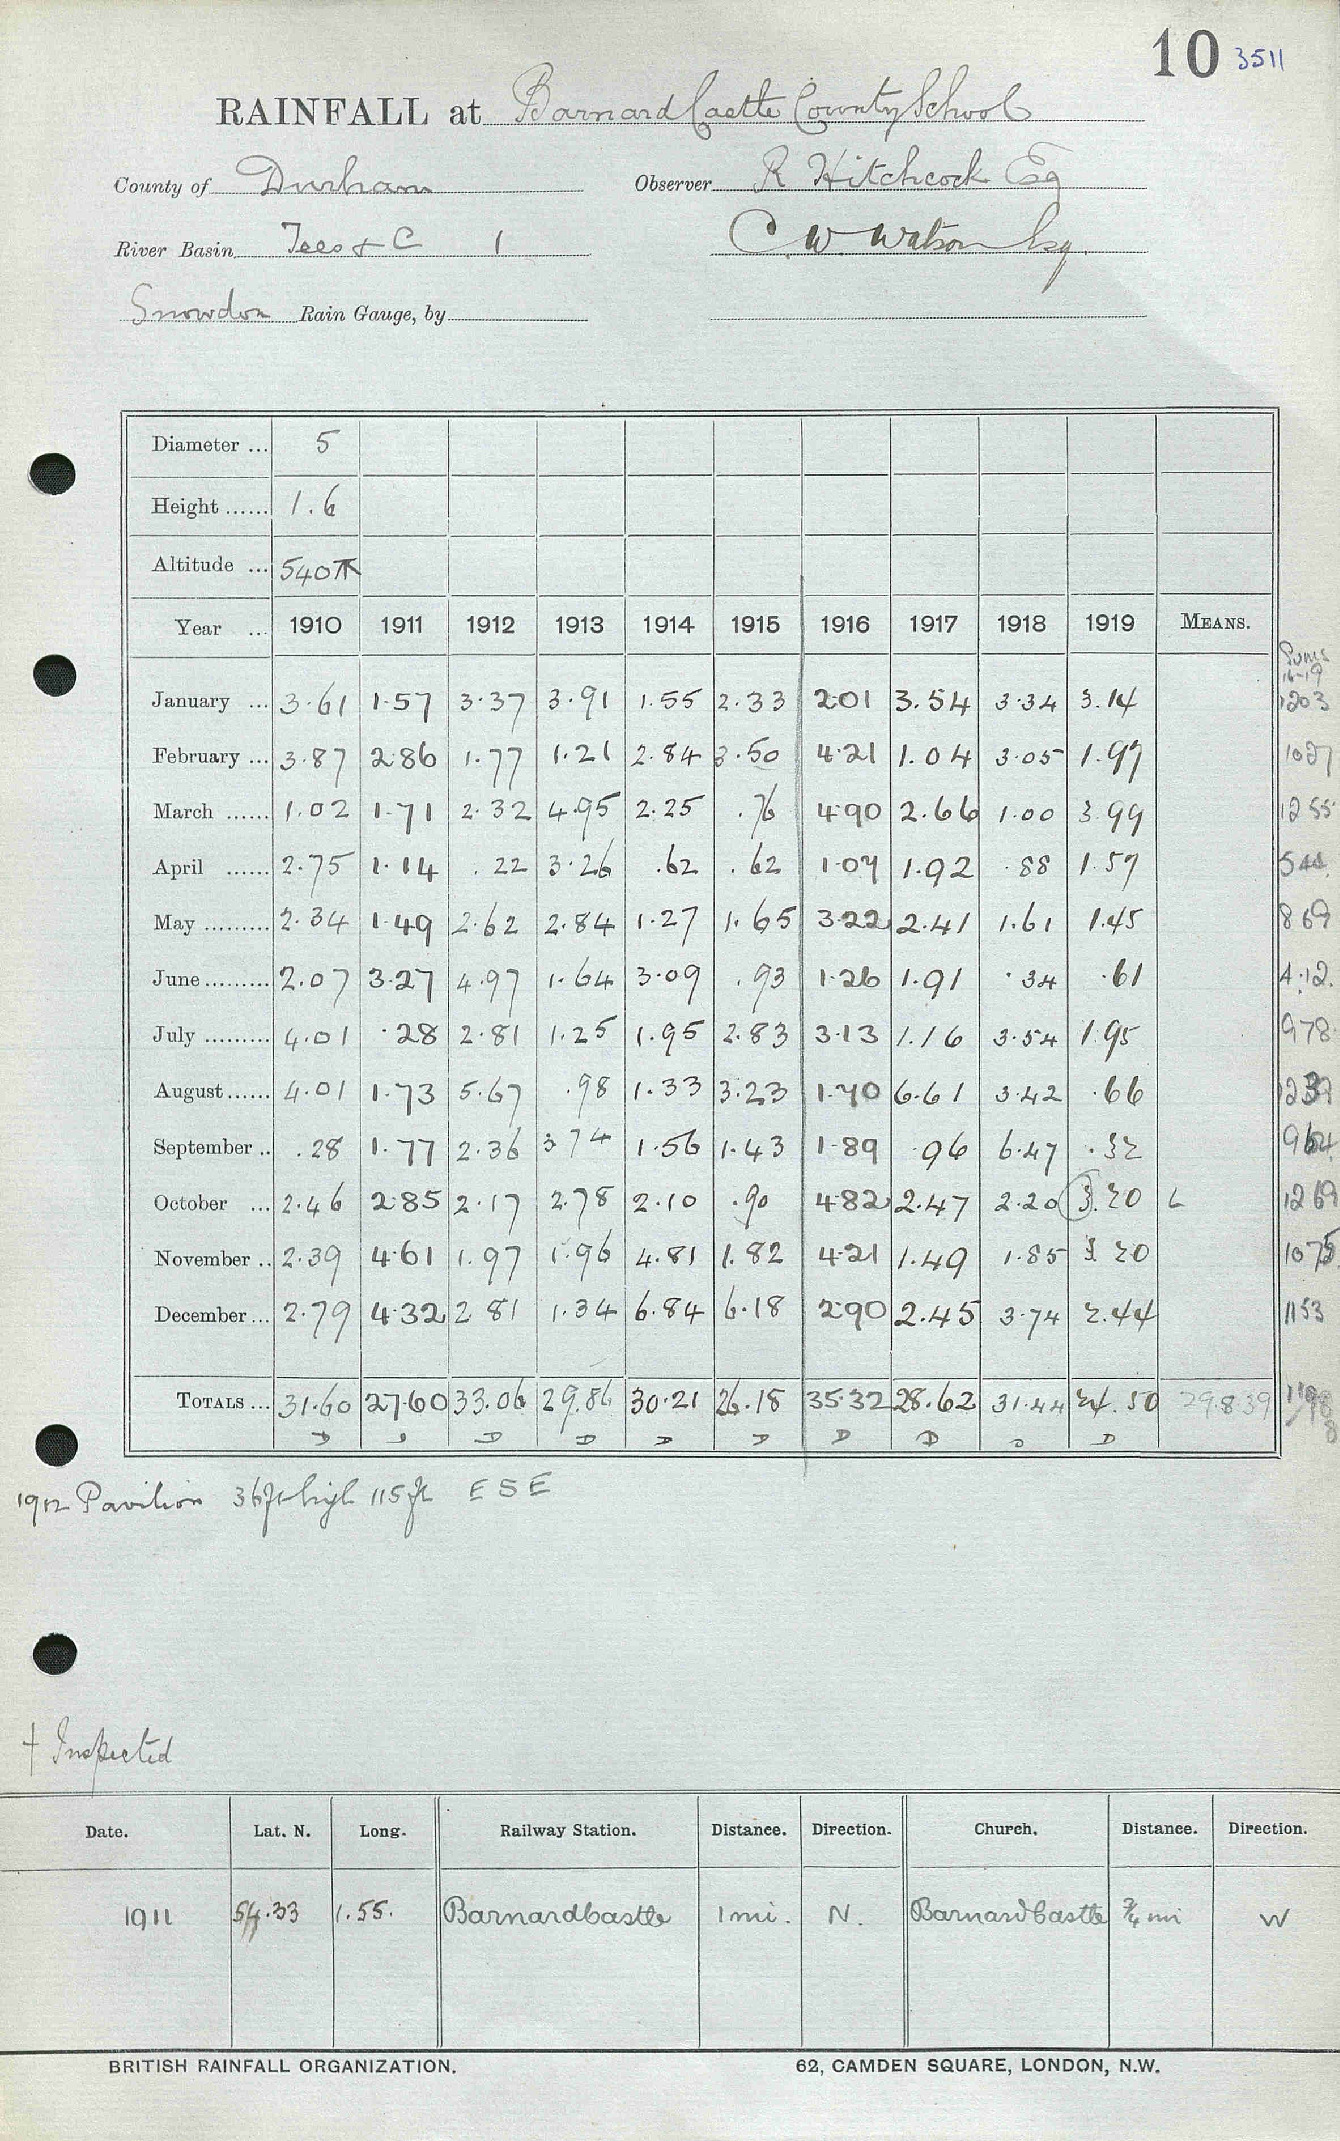 10 3511
RAINFALL at Barnard Castle County School
County of Durham Observer R Hitchcock Esq
River Basin Tees & C 1 C. W. Watson Esq.
Snowdon Rain Gauge, by
Diameter ... 5
Height ...... 1.6
Altitude ... 540
Year ... 1910 1911 1912 1913 1914 1915 1916 1917 1918 1919 MEANS. Sums 16-19
January ... 3.61 1.57 3.37 3.91 1.55 2.33 2.01 3.54 3.34 3.14 1203
February ... 3.87 2.86 1.77 1.21 2.84 3.50 4.21 1.04 3.05 1.97 1027
March ...... 1.02 1.71 2.32 4.95 2.25 .76 4.90 2.66 1.00 3.99 1255
April ...... 2.75 1.14 .22 3.26 .62 .62 1.07 1.92 .88 1.57 544
May ......... 2.34 1.49 2.62 2.84 1.27 1.65 3.22 2.41 1.61 1.45 869
June ......... 2.07 3.27 4.97 1.64 3.09 .93 1.26 1.91 .34 .61 4.12.
July ......... 4.01 .28 2.81 1.25 1.95 2.83 3.13 1.16 3.54 1.95 978
August ...... 4.01 1.73 5.67 .98 1.33 3.23 1.70 6.61 3.42 .66 1239
September .. .28 1.77 2.36 3.74 1.56 1.43 1.89 .96 6.47 .32 964
October ... 2.46 2.85 2.17 2.78 2.10 .90 4.82 2.47 2.20 3.20 L 1269
November .. 2.39 4.61 1.97 1.96 4.81 1.82 4.21 1.49 1.85 3.20 1075
December ... 2.79 4.32 2.81 1.34 6.84 6.18 2.90 2.45 3.74 2.44 1153
TOTALS ... 31.60 27.60 33.06 29.86 30.21 26.18 35.32 28.62 31.44 24.50 29.839
1912 Pavilion 36ft high 115ft E S E
† Inspected
Date. Lat. N. Long. Railway Station. Distance. Direction. Church. Distance. Direction.
1911 54.33 1.55. Barnard Castle 1 mi. N. Barnard Castle ¾ mi W
BRITISH RAINFALL ORGANIZATION. 62, CAMDEN SQUARE, LONDON, N.W.